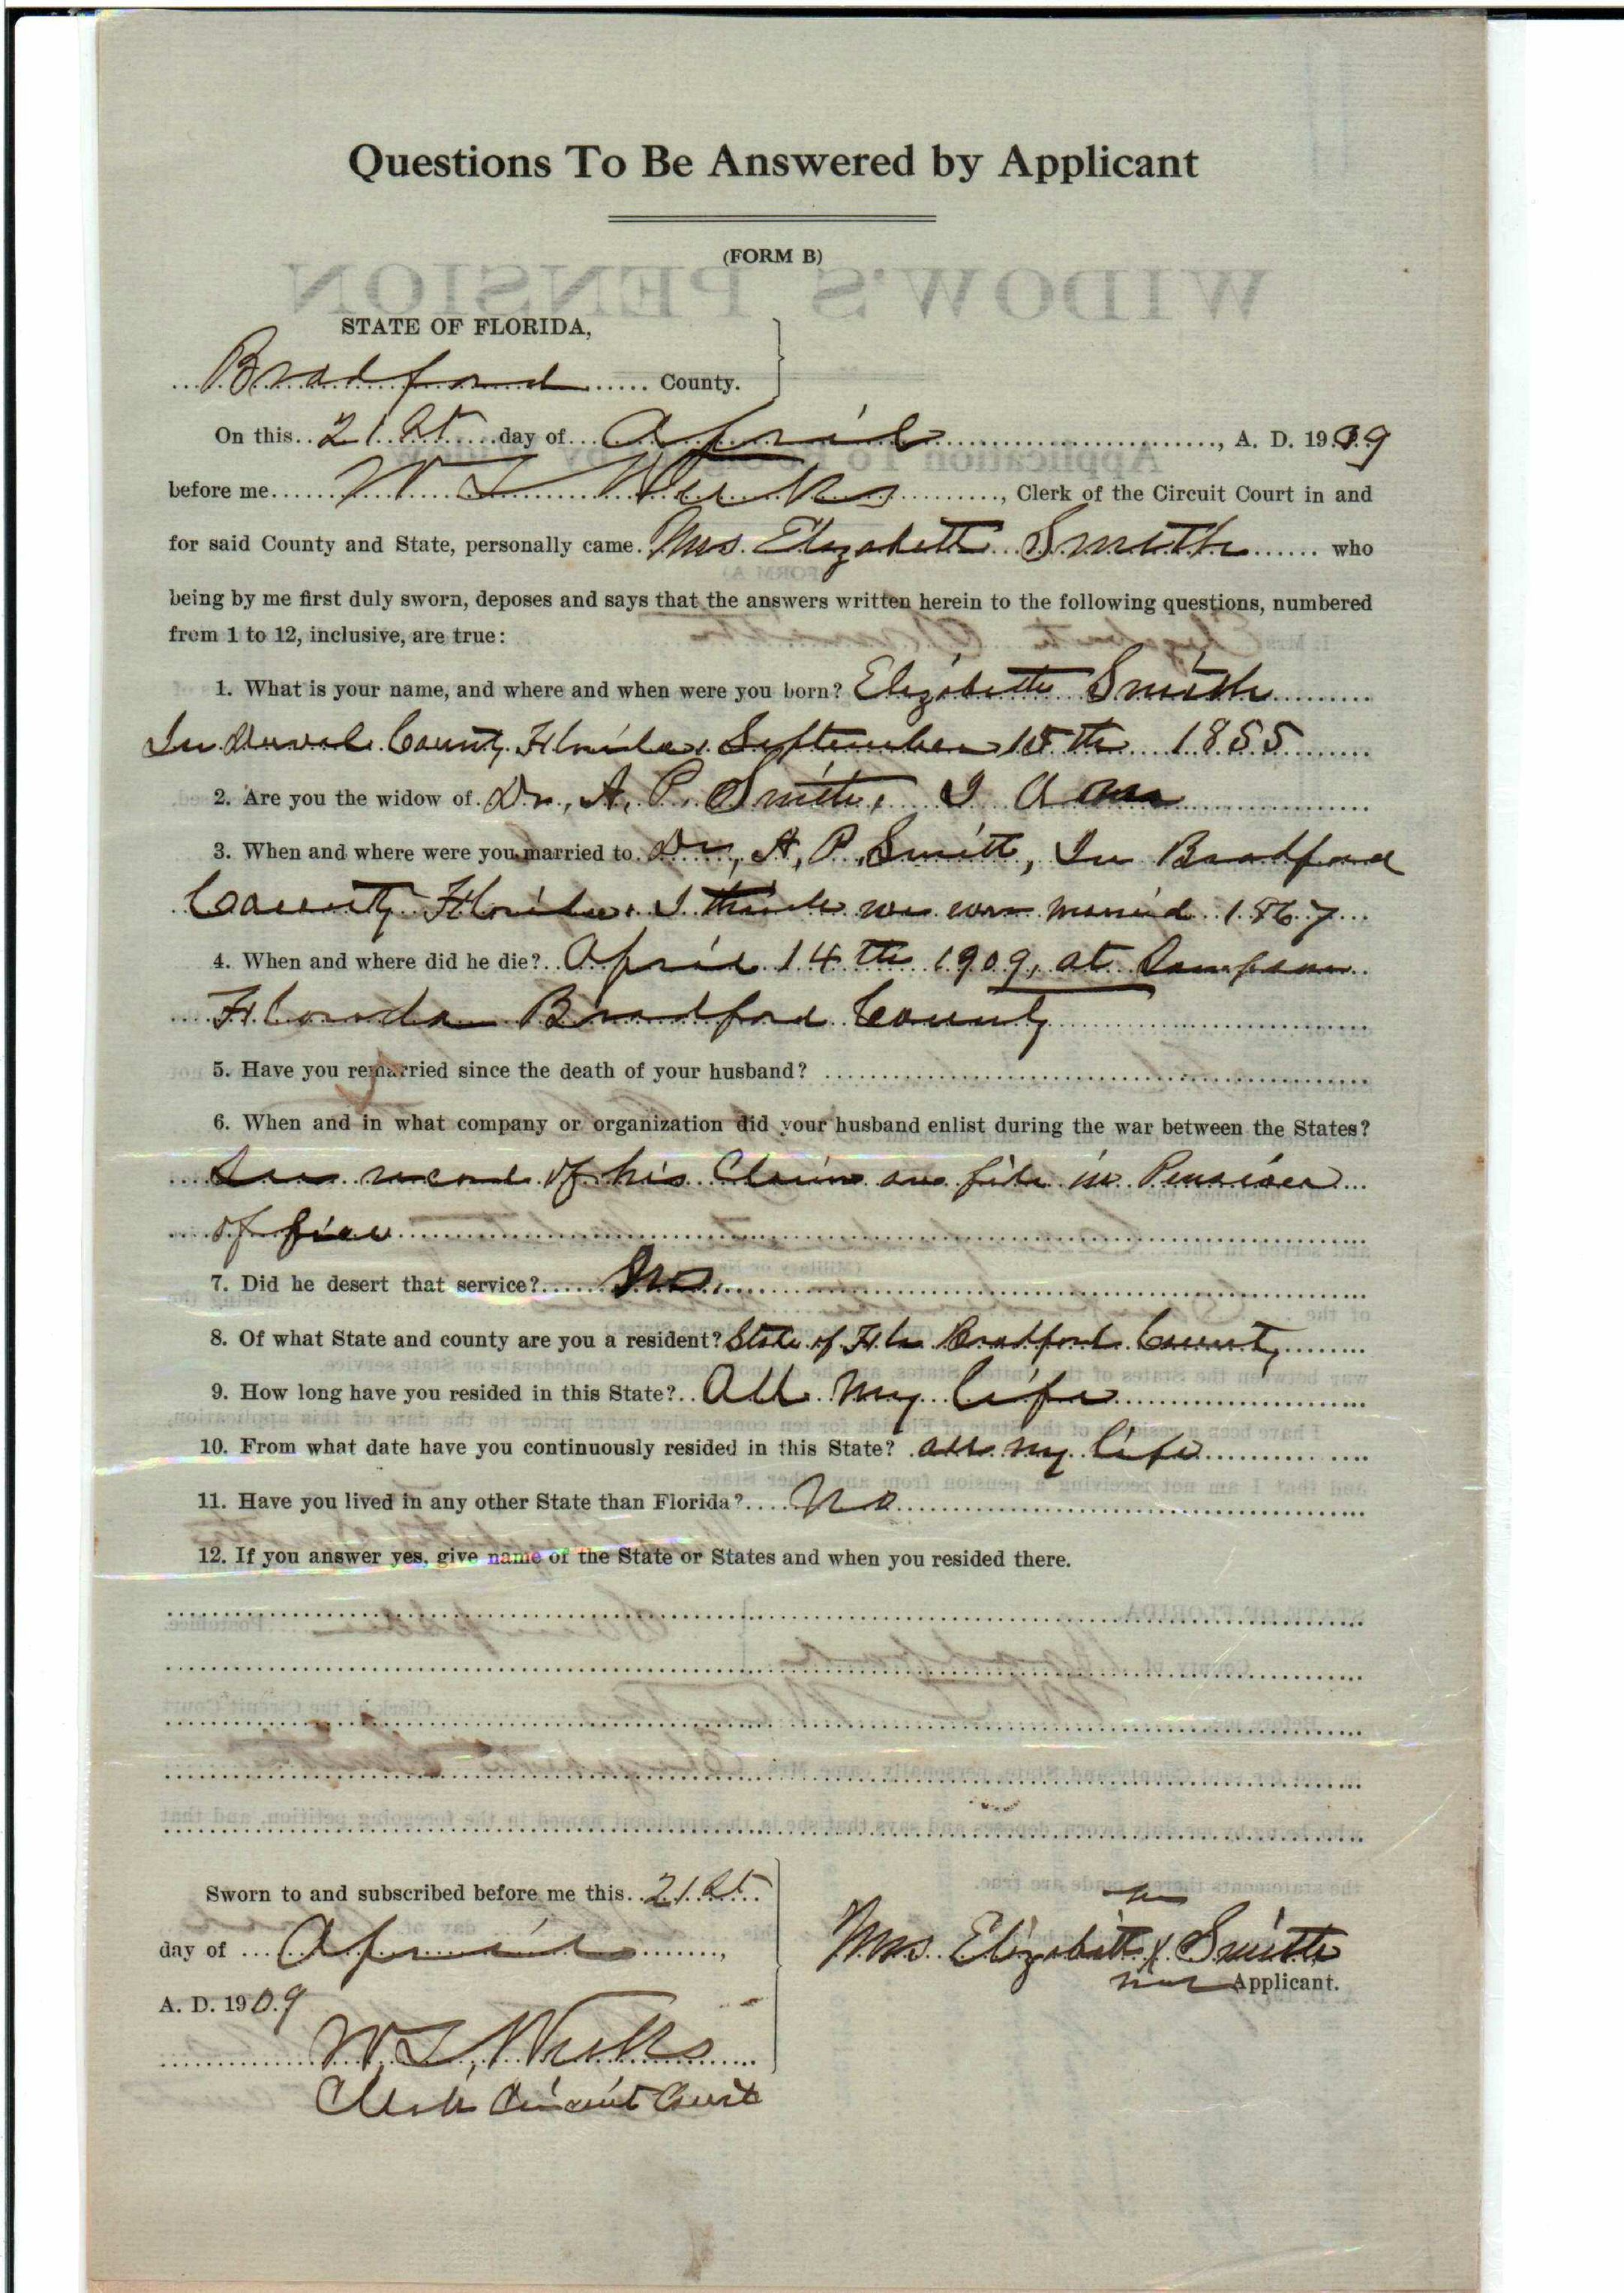 Questions To Be Answered by Applicant
(FORM B)
STATE OF FLORIDA,
Bradford County.
On this 21st day of April, A. D. 1909
before me W L Weeks, Clerk of the Circuit Court in and
for said County and State, personally came Mrs. Elizabeth Smith who
being by me first duly sworn, deposes and says that the answers written herein to the following questions, numbered
from 1 to 12, inclusive, are true:
1. What is your name, and where and when were you born? Elizabeth Smith
In Duval County Florida, September 15th 1855
2. Are you the widow of Dr, A, P. Smith, I am
3. When and where were you married to Dr, A, P. Smith, In Bradford
County Florida. I think we were married 1867
4. When and where did he die? April 14th 1909, at Sampson
Florida Bradford County
5. Have you remarried since the death of your husband?
6. When and in what company or organization did your husband enlist during the war between the States?
See record of his Claim on file in Pension
office
7. Did he desert that service? No.
8. Of what State and county are you a resident? State of Fla Bradford County
9. How long have you resided in this State? All my life
10. From what date have you continuously resided in this State? all my life
11. Have you lived in any other State than Florida? No
12. If you answer yes, give name of the State or States and when you resided there.
Sworn to and subscribed before me this 21st
day of April,
A. D. 1909
W. L. Weeks
Clerk Circuit Court
her
Mrs. Elizabeth X Smith
mark Applicant.